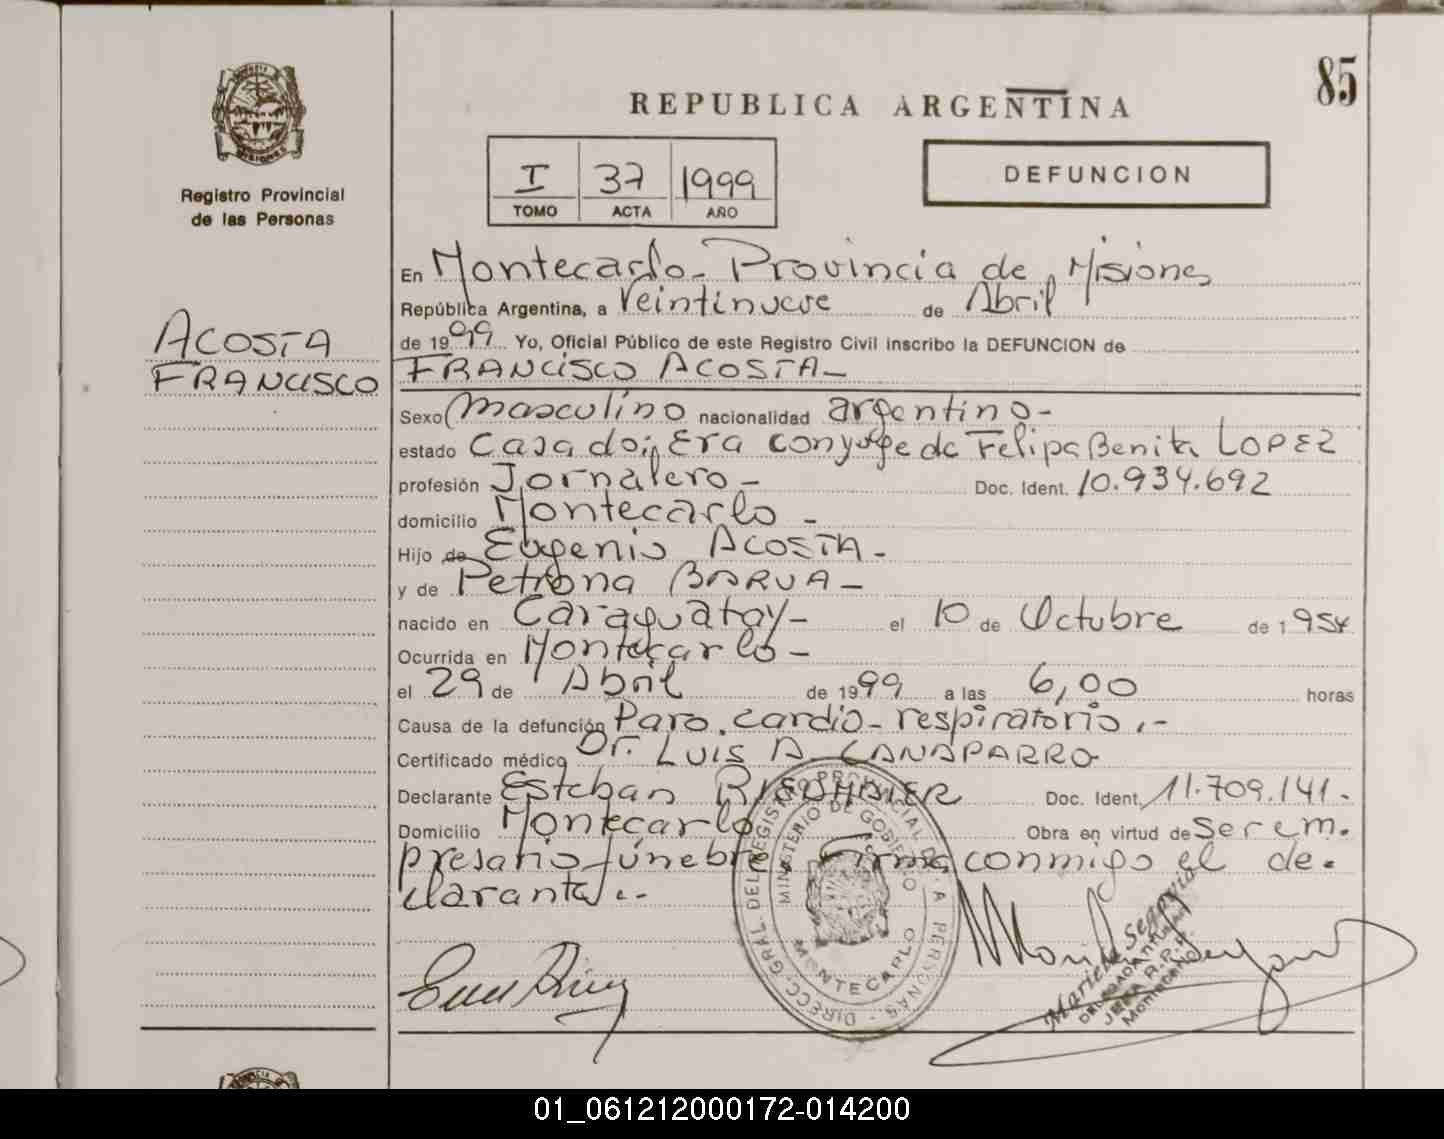 85
REPUBLICA ARGENTINA
Registro Provincial
de las Personas
I 37 1999
TOMO ACTA AÑO
DEFUNCION
ACOSTA
FRANCISCO
En Montecarlo - Provincia de Misiones
República Argentina, a Veintinueve de Abril
de 1999 Yo, Oficial Público de este Registro Civil inscribo la DEFUNCION de
FRANCISCO ACOSTA -
Sexo Masculino nacionalidad argentino -
estado Casado; Era conyuge de Felipa Benita LOPEZ
profesión Jornalero - Doc. Ident. 10.934.692
domicilio Montecarlo -
Hijo de Eugenio ACOSTA -
y de Petrona BARUA -
nacido en Caraguatay - el 10 de Octubre de 1954
Ocurrida en Montecarlo -
el 29 de Abril de 1999 a las 6,00 horas
Causa de la defunción Paro cardio - respiratorio . -
Certificado médico Dr. LUIS A CANAPARRO
Declarante Esteban Doc. Ident. 11.709.141 .
Domicilio Montecarlo Obra en virtud de Ser em.
presario fúnebre. Firma conmigo el de.
clarante . -
DIRECC. GRAL. DEL REGISTRO PROVINCIAL DE LA PERSONAS
MINISTERIO DE GOBIERNO
MONTECARLO
Mariela Segovia
MISIONES
01_061212000172-014200